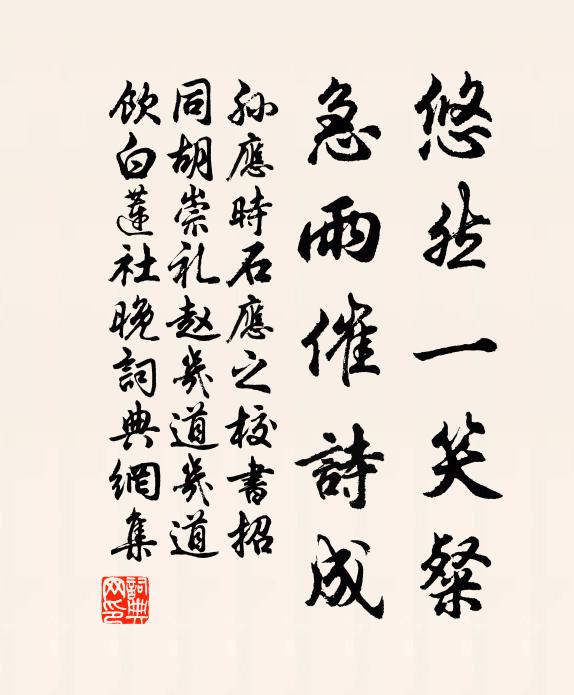 悠然一笑粲
急雨催詩成
孙應時石應之校書招
同胡崇礼赵幾道幾道
飲白蓮社晚詞典網集
詞典网印